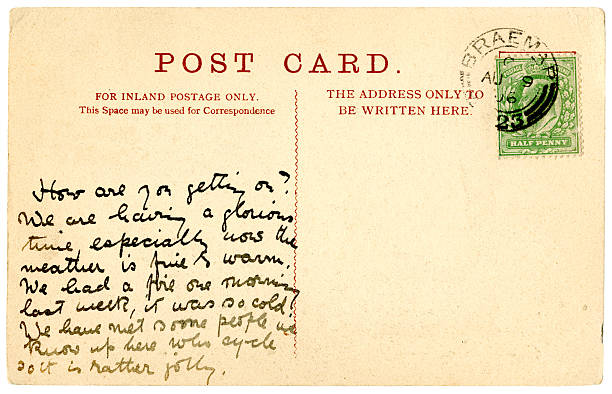 BRAEMAR
AU 9
06
23
POST CARD.
FOR INLAND POSTAGE ONLY.
This Space may be used for Correspondence
THE ADDRESS ONLY TO
BE WRITTEN HERE.
HALF PENNY
How are you getting on?
We are having a glorious
time, especially now the
weather is fine & warm.
We had a fire one morning
last week, it was so cold!
We have met some people we
know up here who cycle
so it is rather jolly.